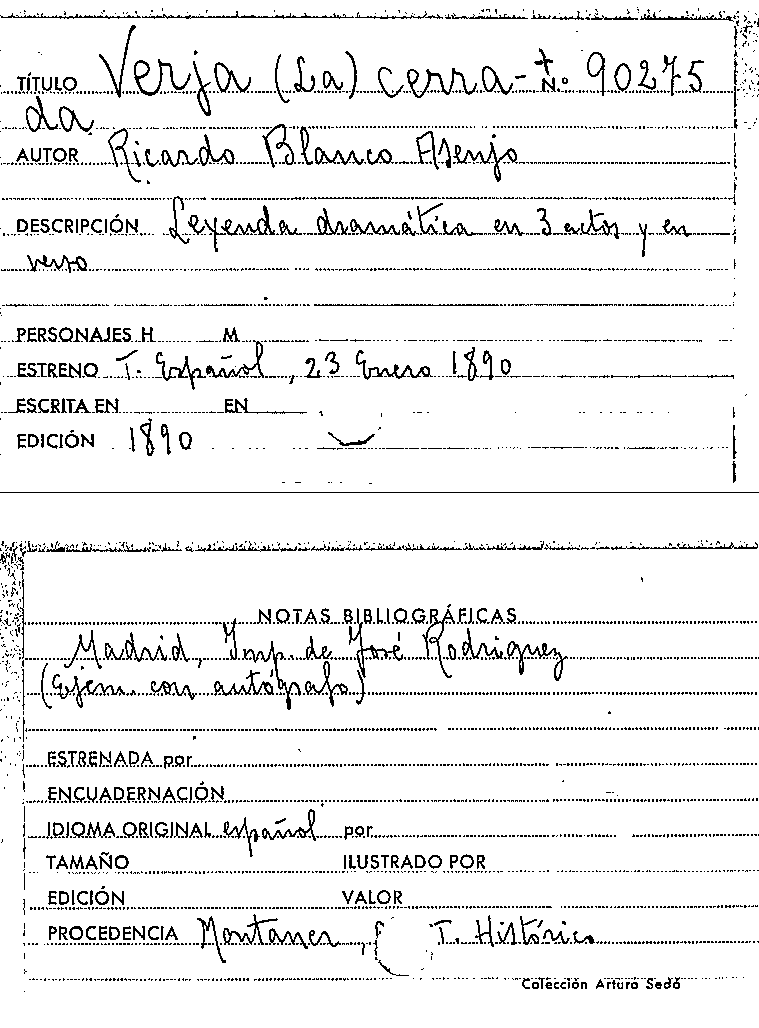 TÍTULO Verja (La) cerra- + N.º 90275
da
AUTOR Ricardo Blanco Asenjo
DESCRIPCIÓN Leyenda dramática en 3 actos y en
verso
PERSONAJES H M
ESTRENO T. Español, 23 Enero 1890
ESCRITA EN EN
EDICIÓN 1890
NOTAS BIBLIOGRÁFICAS
Madrid, Imp. de José Rodriguez
(Ejem. con autógrafo)
ESTRENADA por
ENCUADERNACIÓN
IDIOMA ORIGINAL español por
TAMAÑO ILUSTRADO POR
EDICIÓN VALOR
PROCEDENCIA Montaner, T. Histórico
Colección Arturo Sedó